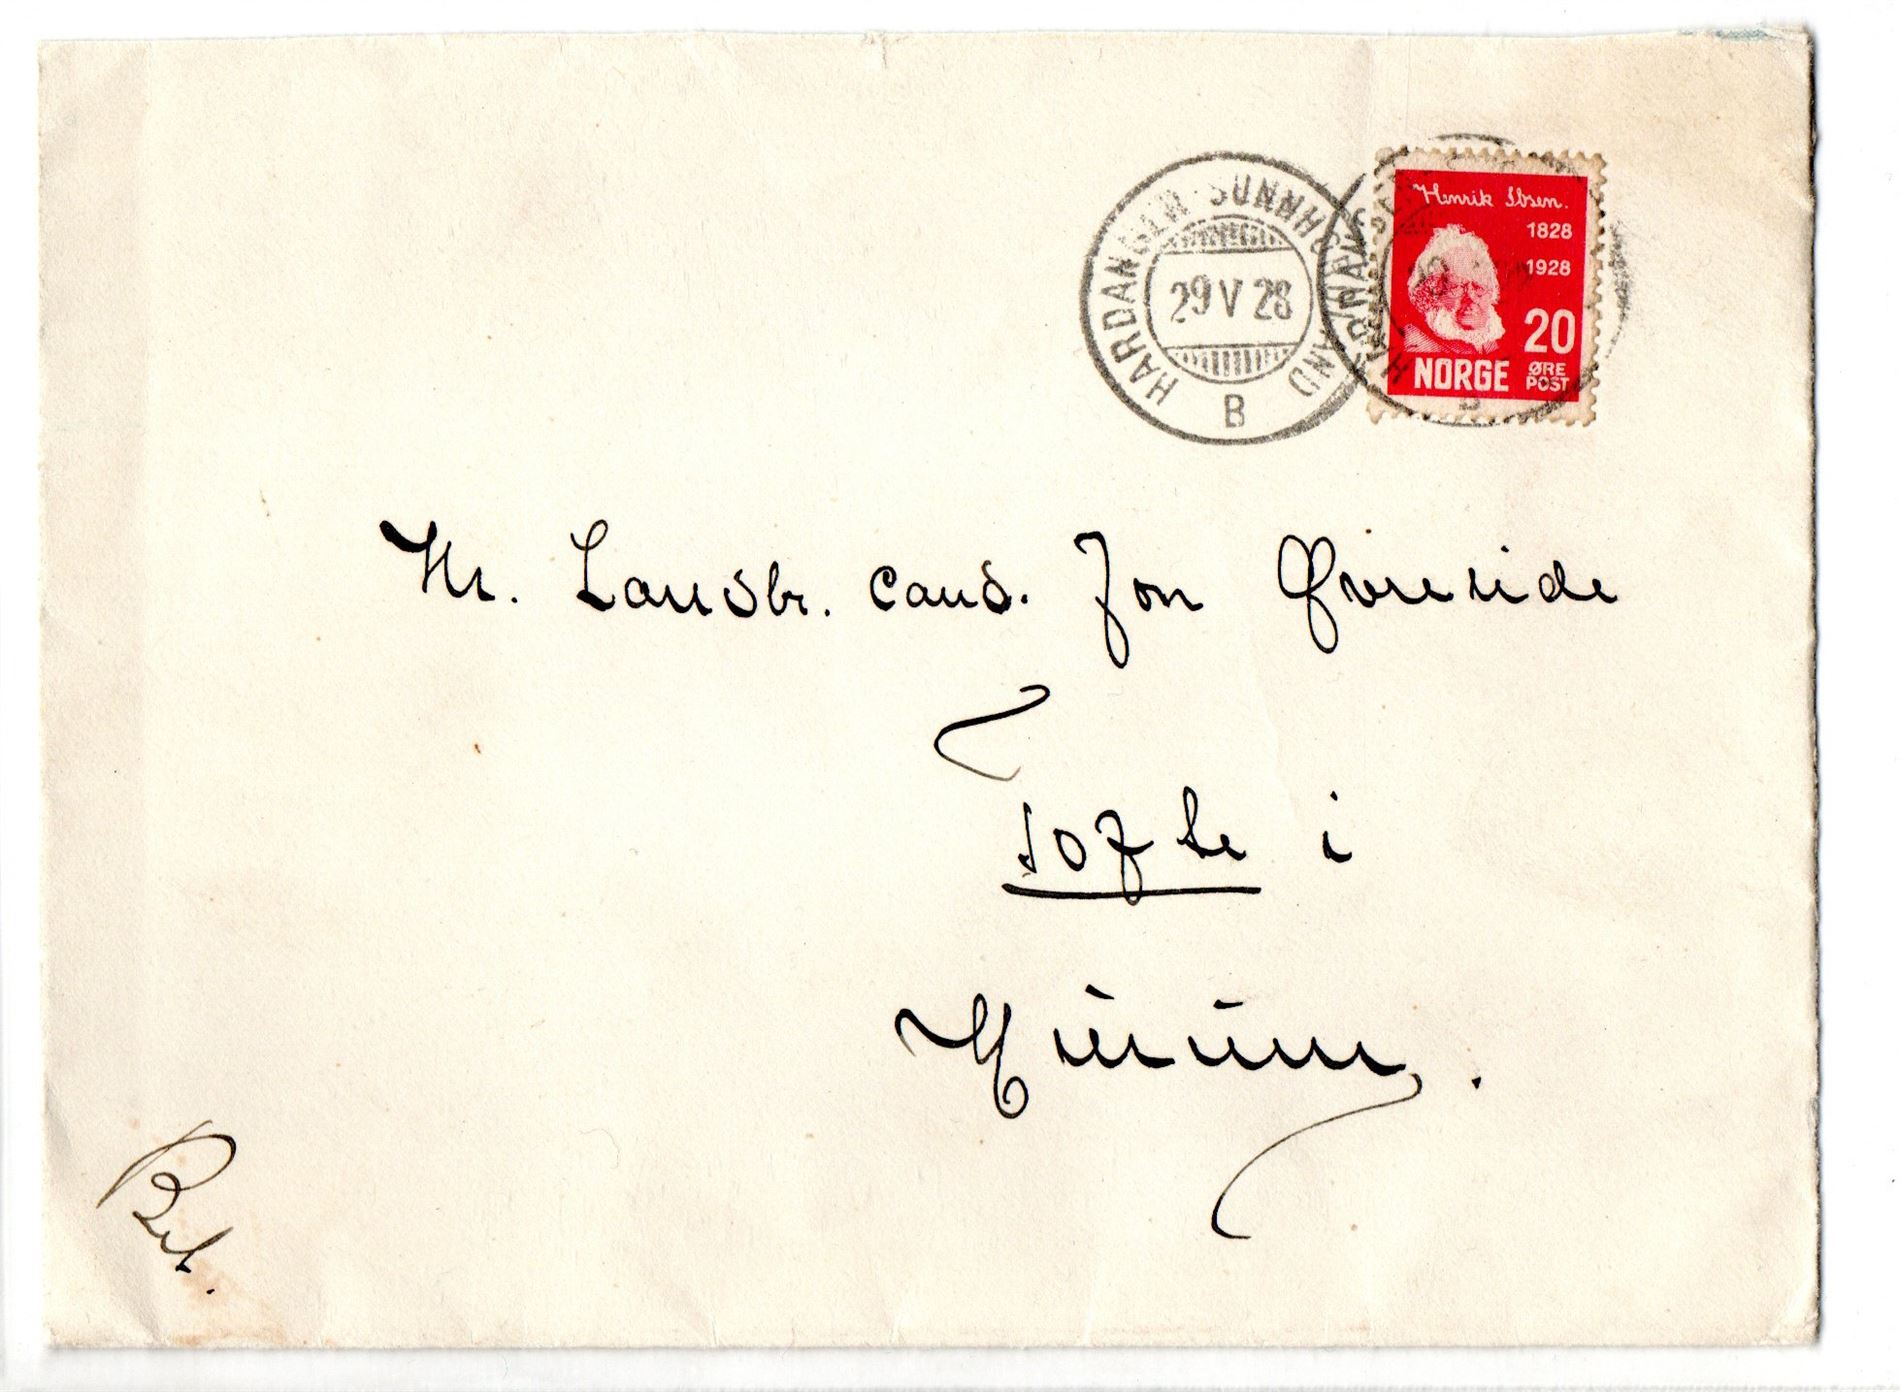 HARDANGER-SUNNHORDLAND
29 V 28
B
Henrik Ibsen.
1828
1928
20
NORGE ØRE
POST
Hr. Landbr. cand. Jon
Tofte i
Hurum.